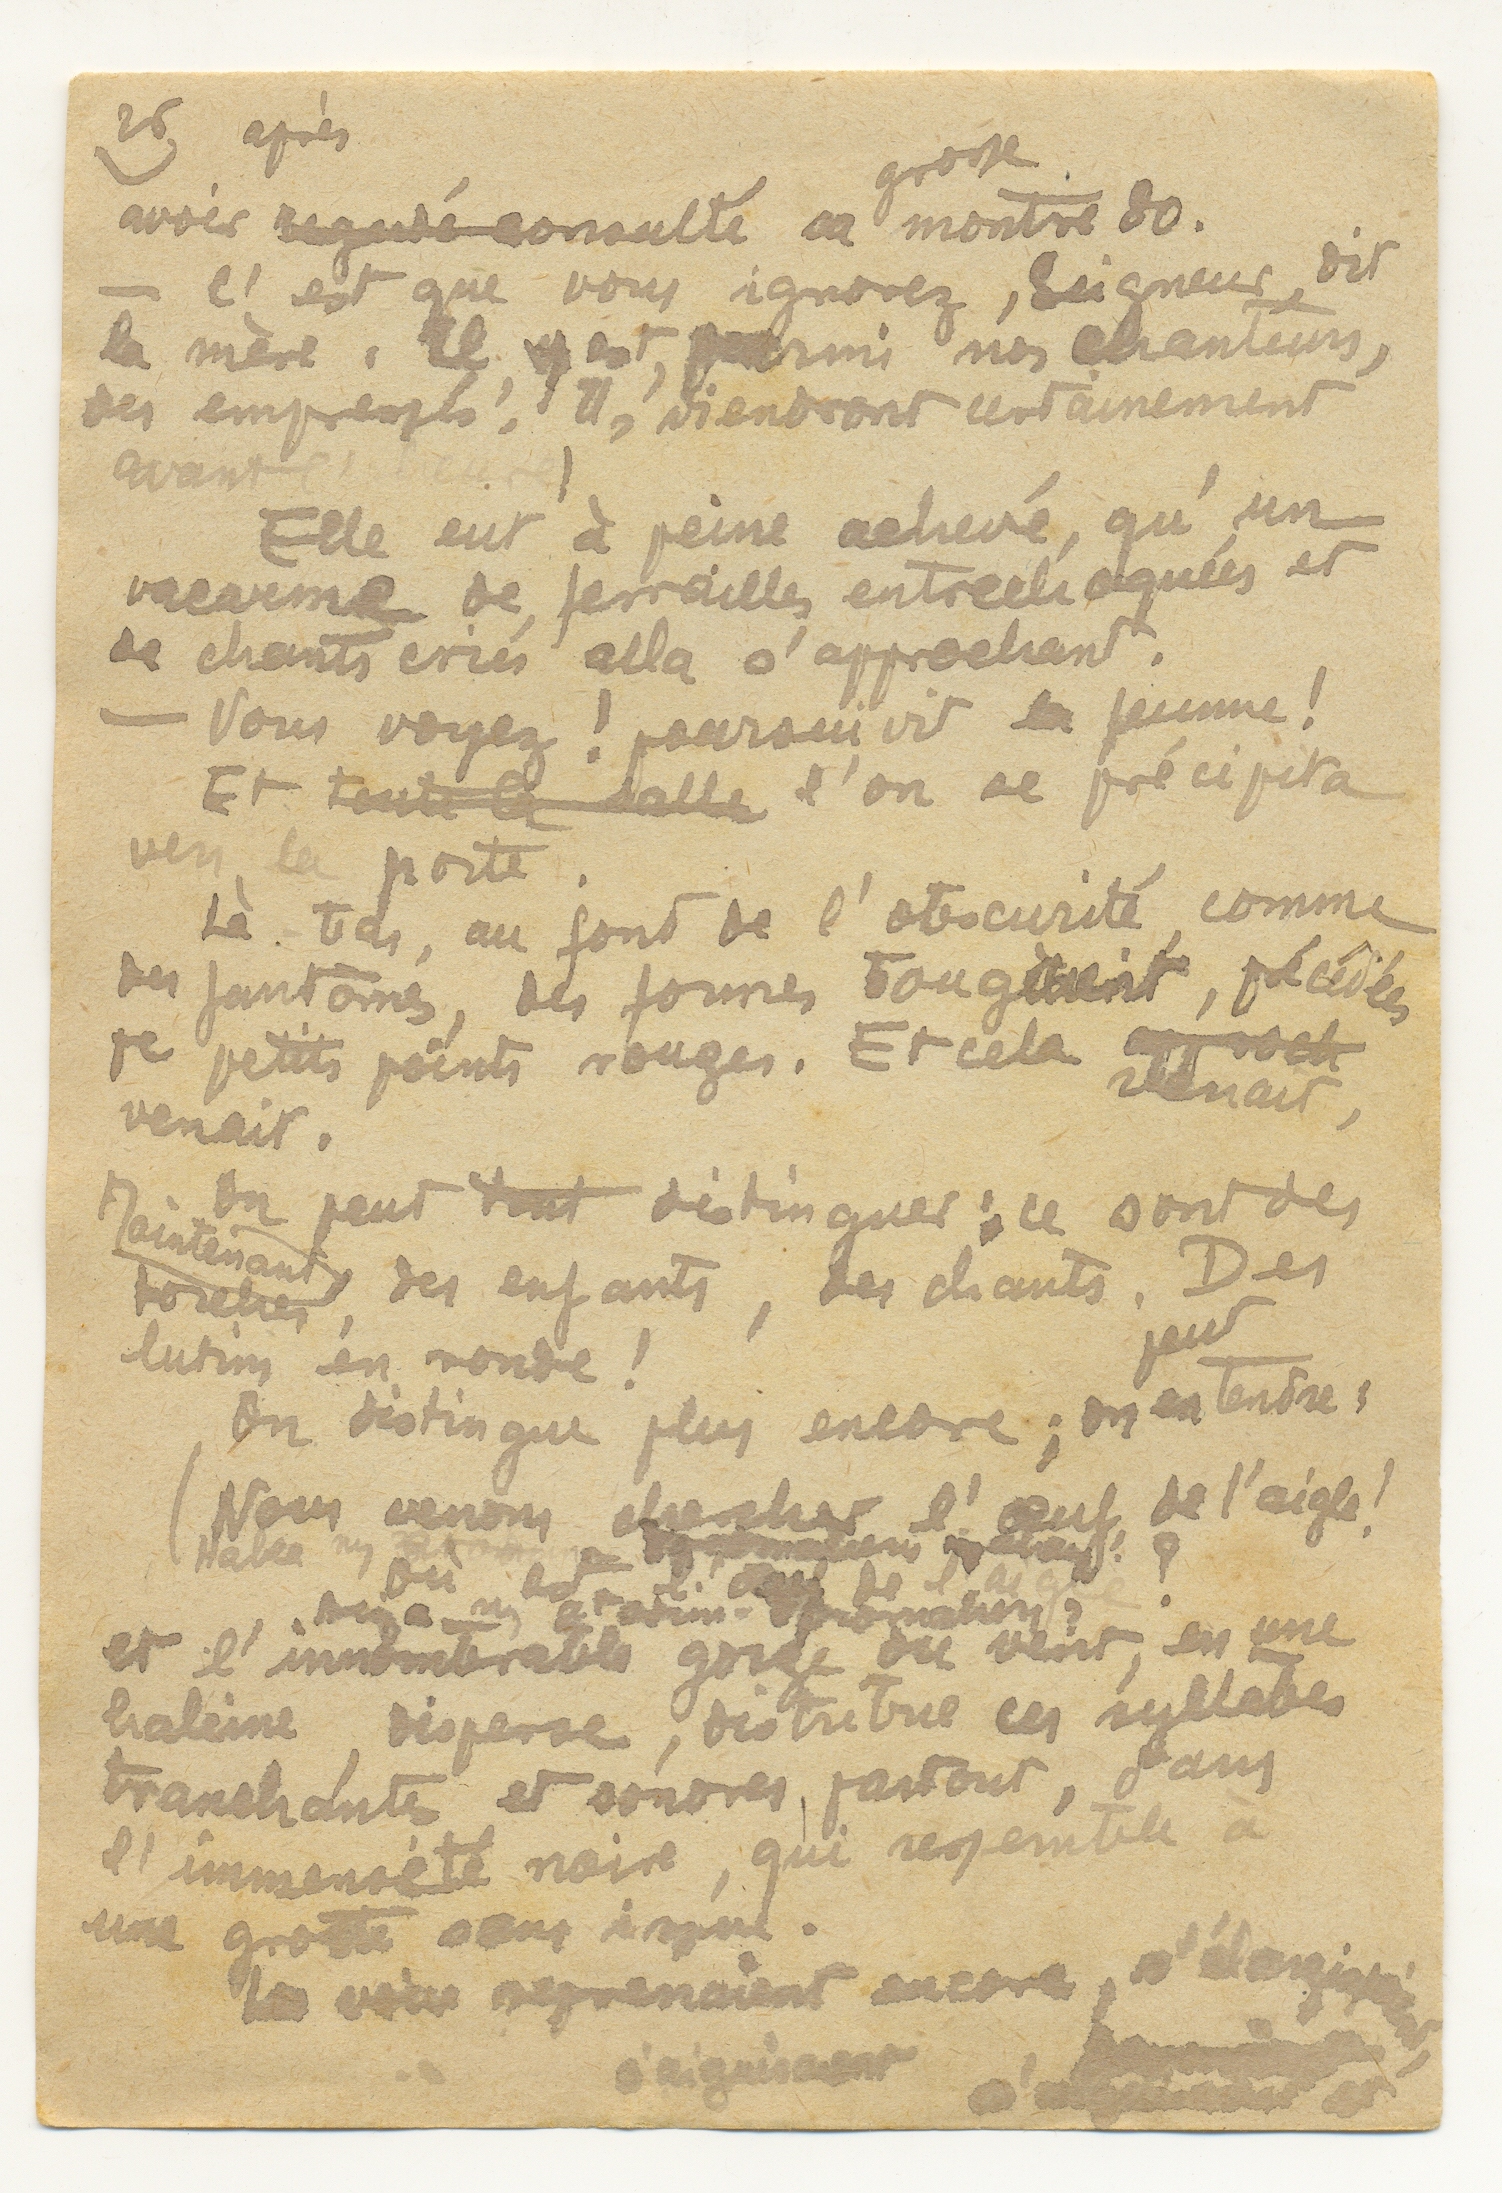 26 après
grosse
avoir regardé consulté sa montre 80.
— C'est que vous ignorez, Seigneur, dit
la mère. Il y est, parmi nos chanteurs,
des empressés! Ils viendront certainement
avant l'heure!
Elle eut à peine achevé, qu'un
vacarme de ferrailles entrechoquées et
de chants criés alla s'approchant.
— Vous voyez! poursuivit la femme!
Et toute la salle l'on se précipita
vers la porte.
Là-bas, au fond de l'obscurité, comme
des fantômes, des formes bougeaient, précédées
de petits points rouges. Et cela approch
venait,
venait.
On peut tout distinguer : ce sont des
Maintenant
torches, des enfants, des chants. Des
lutins en ronde!
peut
On distingue plus encore; on entendre :
(Nous venons chercher l'œuf de l'aigle!
Où est l'œuf de l'aigle?
et l'innombrable gorge du vent, en une
haleine, disperse, distribue ces syllabes
tranchantes et sonores, partout, dans
l'immensité noire, qui ressemble à
une grotte sans issue.
Les voix reprenaient encore, s'élargissaient,
s'aiguisaient